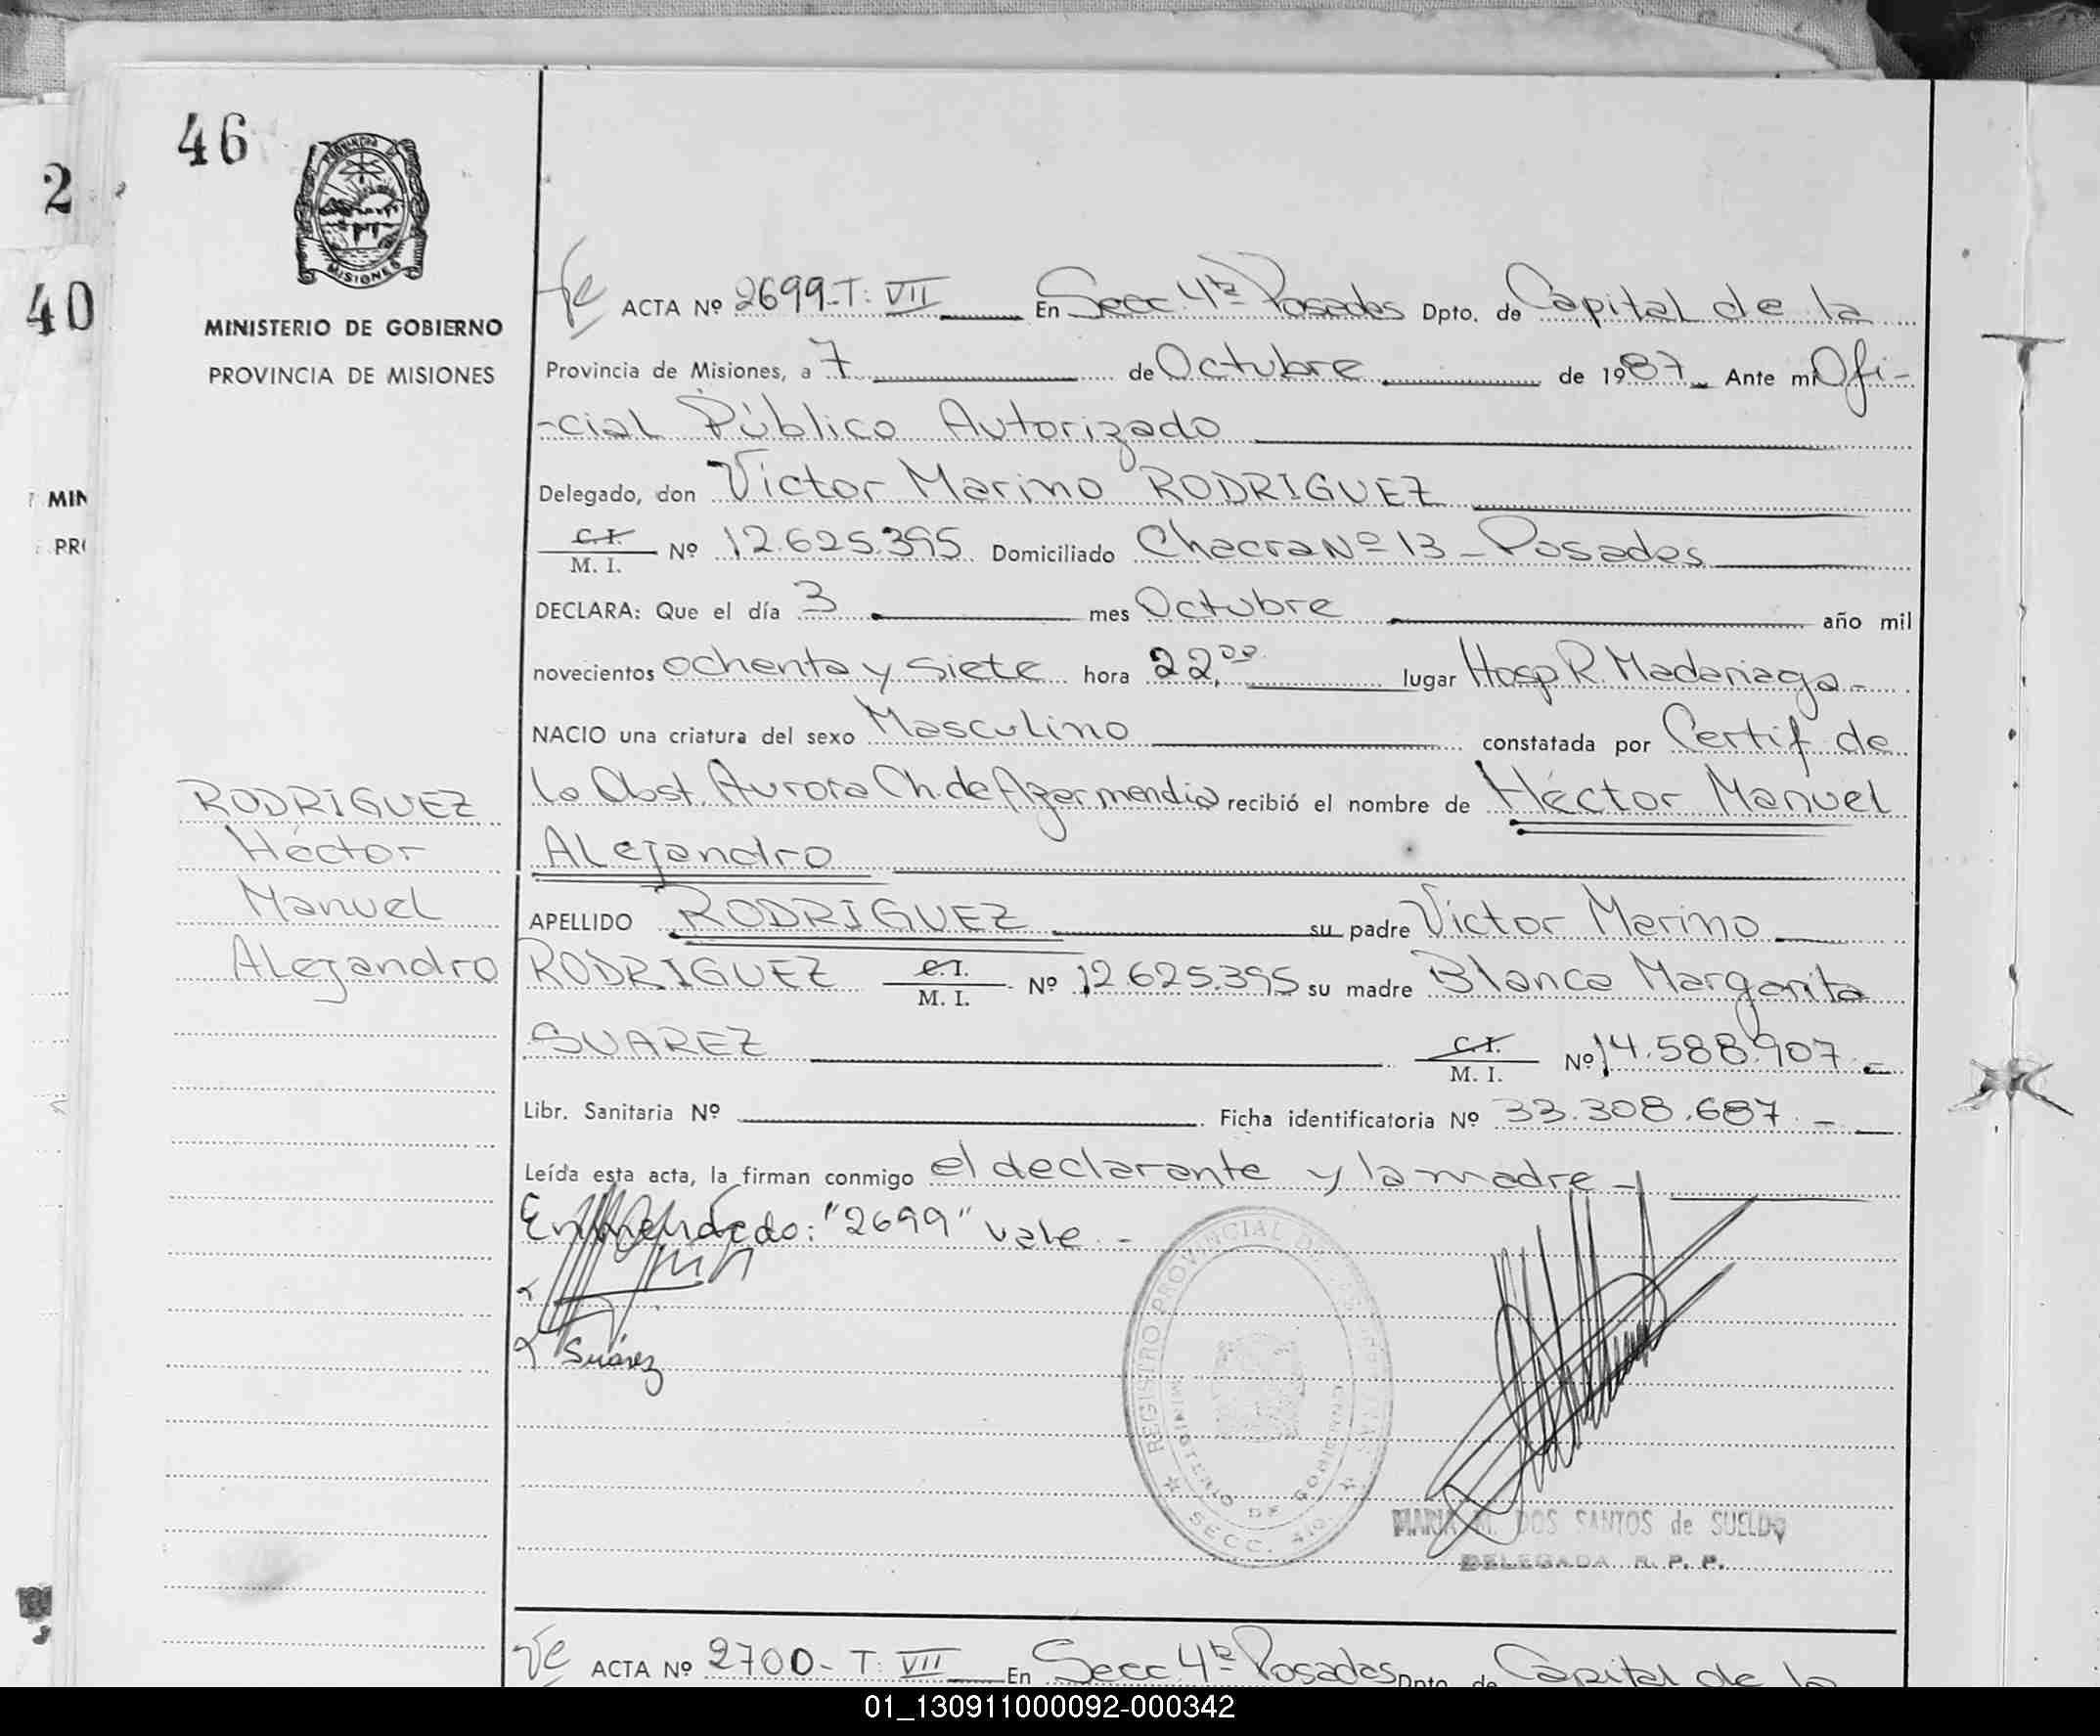 46
2
40
PROVINCIA DE
MISIONES
MINISTERIO DE GOBIERNO
PROVINCIA DE MISIONES
MIN
PR
ACTA Nº 2699-T: VII En Secc. 4ta Posadas Dpto. de Capital de la
Provincia de Misiones, a 7 de Octubre de 1987 Ante mi Ofi-
-cial Público Autorizado
Delegado, don Victor Marino RODRIGUEZ
C. I.
M. I. Nº 12.625.395 Domiciliado Chacra Nº 13 - Posadas
DECLARA: Que el día 3 mes Octubre año mil
novecientos ochenta y siete hora 22,00 lugar Hosp R. Madariaga-
NACIO una criatura del sexo Masculino constatada por Certif de
la Obst. Aurora Ch. de Azarmendia recibió el nombre de Héctor Manuel
Alejandro
APELLIDO RODRIGUEZ su padre Victor Marino
RODRIGUEZ C. I.
M. I. Nº 12.625.395 su madre Blanca Margarita
SUAREZ C. I.
M. I. Nº 14.588.907.-
Libr. Sanitaria Nº Ficha identificatoria Nº 33.308.687.-
Leída esta acta, la firman conmigo el declarante y la madre-
Enmendado: "2699" vale.-
Suárez
RODRIGUEZ
Héctor
Manuel
Alejandro
REGISTRO PROVINCIAL DE LAS PERSONAS
MINISTERIO DE GOBIERNO
SECC. 4ta.
MARIA M. DOS SANTOS de SUELDO
DELEGADA R. P. P.
ACTA Nº 2700- T: VII En Secc 4ta Posadas Dpto de Capital de la
01_130911000092-000342